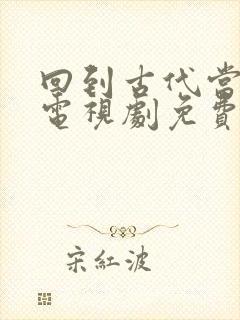 回到古代当
電視劇免費
宋紅波